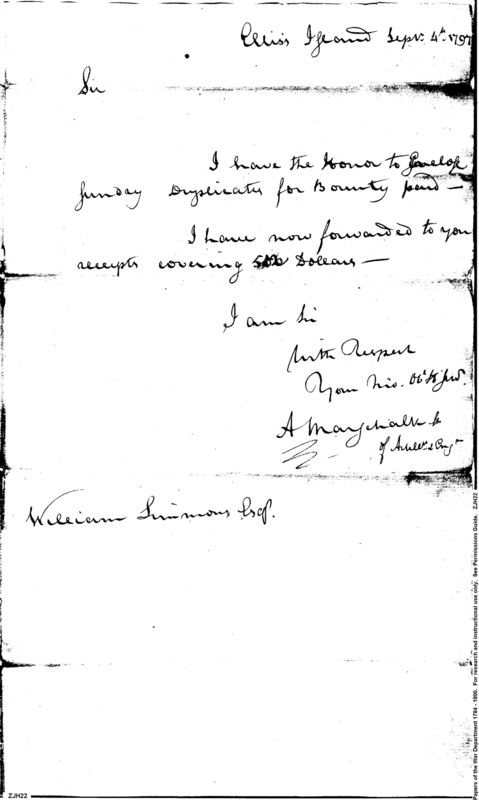 Ellis Island Sepr. 4th. 1797
Sir
I have the Honor to Envelop
sunday Duplicates for Bounty paid —
I have now forwarded to you
receipts covering Dollars —
I am Sir
With Respect
Your Mo. Obt. Hl. Servt.
A Marschalk Lt
of Artills. & Engrs
William Simmons Esqr.
ZJH22
Papers of the War Department 1784 - 1800. For research and instructional use only. See Permissions Guide. ZJH22